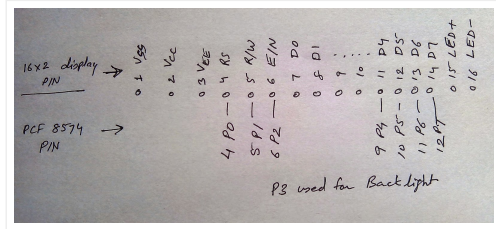 16x2 display PIN →
o 1 VSS
o 2 VCC
o 3 VEE
4 P0 — o 4 RS
5 P1 — o 5 R/W
6 P2 — o 6 E/N
o 7 D0
o 8 D1
o 9 ....
o 10 ....
9 P4 — o 11 D4
10 P5 — o 12 D5
11 P6 — o 13 D6
12 P7 — o 14 D7
o 15 LED+
o 16 LED-
PCF 8574 PIN →
P3 used for Backlight